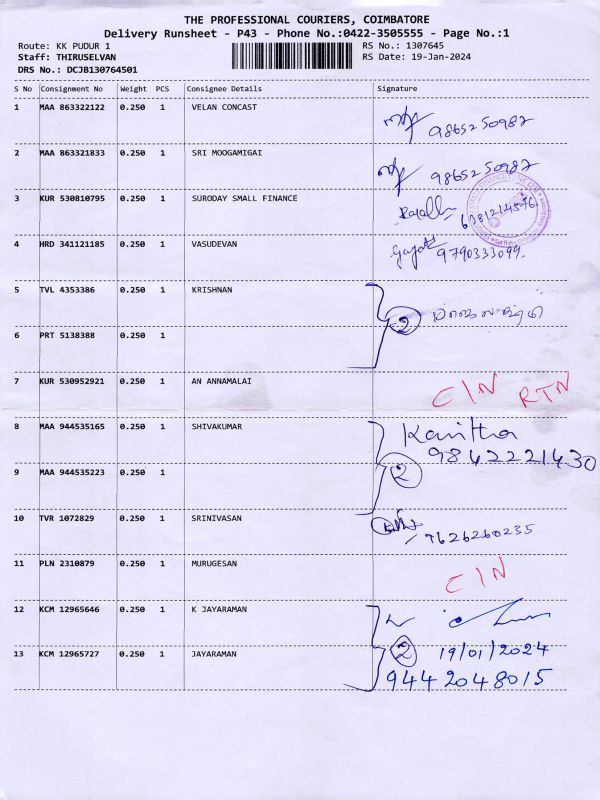 THE PROFESSIONAL COURIERS, COIMBATORE
Delivery Runsheet - P43 - Phone No.:0422-3505555 - Page No.:1
Route: KK PUDUR 1 RS No.: 1307645
Staff: THIRUSELVAN RS Date: 19-Jan-2024
DRS No.: DCJB130764501
S No Consignment No Weight PCS Consignee Details Signature
1 MAA 863322122 0.250 1 VELAN CONCAST
9865250987
2 MAA 863321833 0.250 1 SRI MOOGAMIGAI
9865250987
3 KUR 530810795 0.250 1 SURODAY SMALL FINANCE
4 HRD 341121185 0.250 1 VASUDEVAN
9790333099.
5 TVL 4353386 0.250 1 KRISHNAN
2
6 PRT 5138388 0.250 1
7 KUR 530952921 0.250 1 AN ANNAMALAI
CIN RTN
8 MAA 944535165 0.250 1 SHIVAKUMAR Kavitha
9842221430
9 MAA 944535223 0.250 1 2
10 TVR 1072829 0.250 1 SRINIVASAN
7626260235
11 PLN 2310879 0.250 1 MURUGESAN
CIN
12 KCM 12965646 0.250 1 K JAYARAMAN
13 KCM 12965727 0.250 1 JAYARAMAN 2 19/01/2024
9442048015